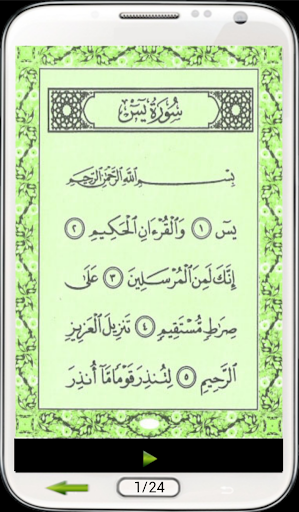 سُورَةُ يسٓ
بِسْمِ ٱللَّهِ ٱلرَّحْمَٰنِ ٱلرَّحِيمِ
يسٓ ١ وَٱلْقُرْءَانِ ٱلْحَكِيمِ ٢
إِنَّكَ لَمِنَ ٱلْمُرْسَلِينَ ٣ عَلَىٰ
صِرَٰطٍ مُّسْتَقِيمٍ ٤ تَنزِيلَ ٱلْعَزِيزِ
ٱلرَّحِيمِ ٥ لِتُنذِرَ قَوْمًا مَّآ أُنذِرَ
1/24